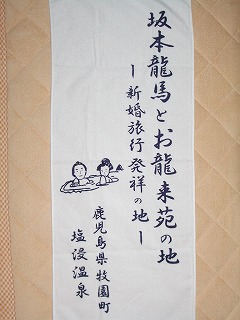 坂本龍馬とお龍来苑の地
ー新婚旅行発祥の地ー
鹿児島県牧園町
塩浸温泉